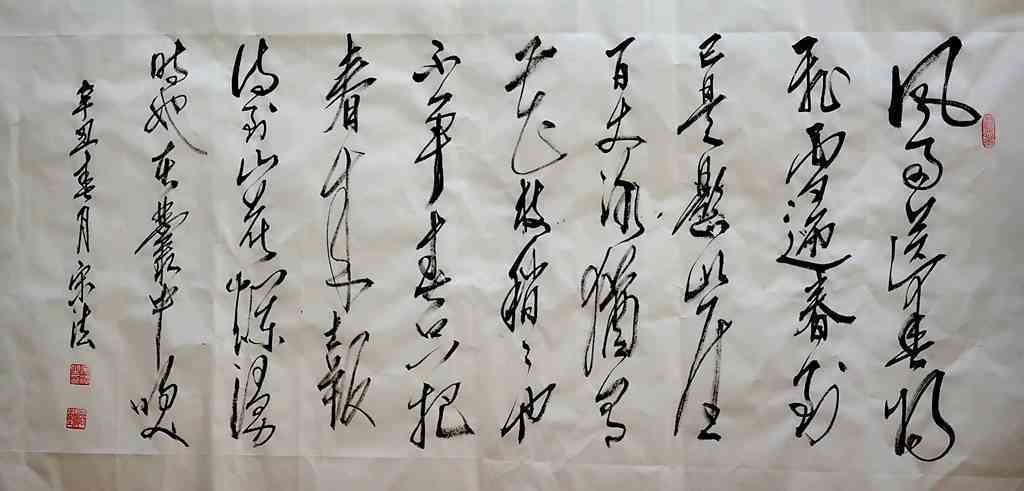 風雨送春歸
飛雪迎春到
已是懸崖
百丈冰猶有
花枝俏〻也
不争春只把
春来報
待到山花爛漫
時她在叢中咲
辛丑春月宋法